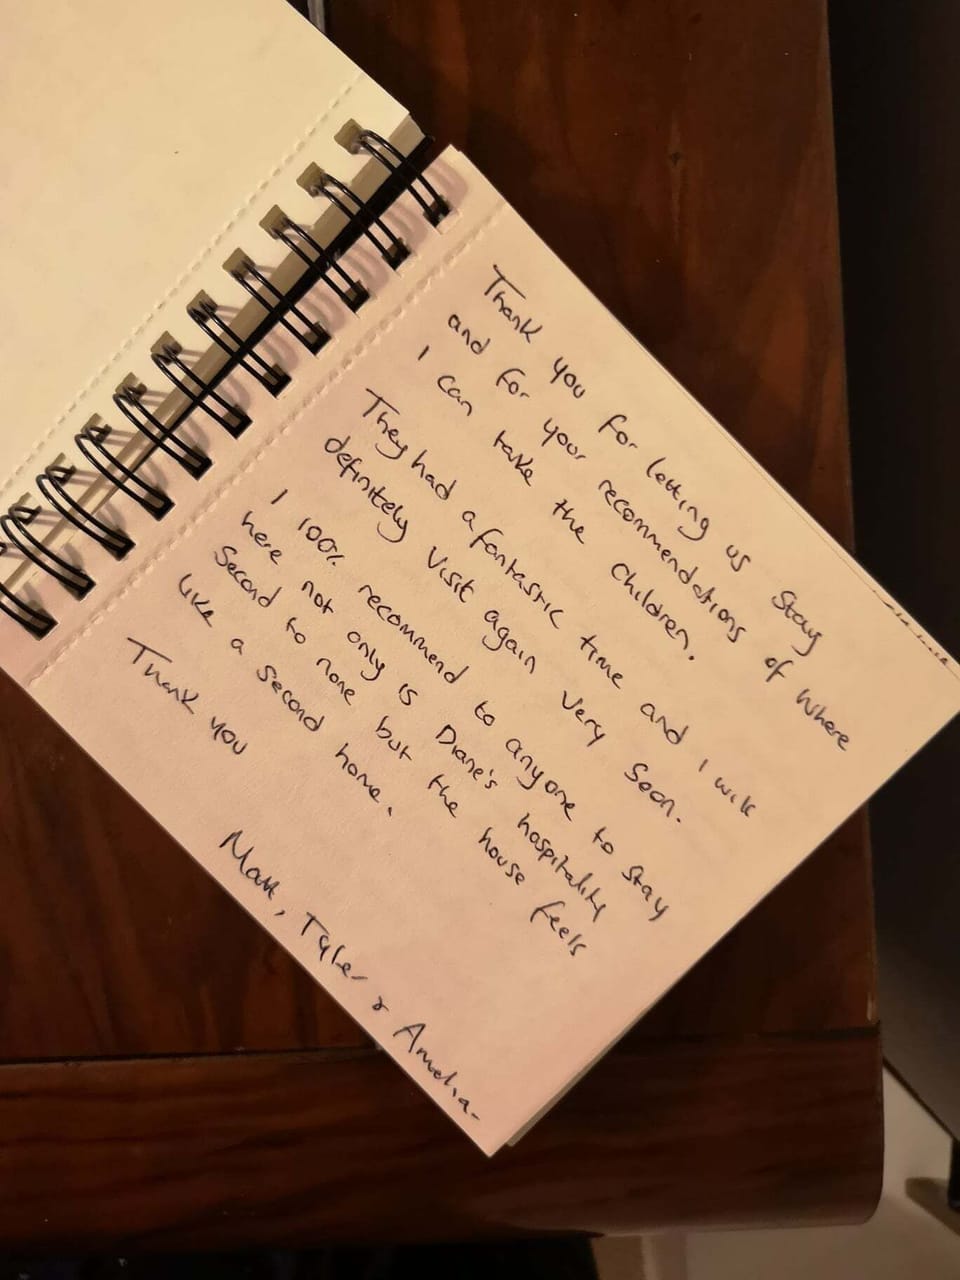 Thank you for letting us stay
and for your recommendations of where
I can take the children.
They had a fantastic time and I will
definitely visit again very soon.
I 100% recommend to anyone to stay
here not only is Diane's hospitality
second to none but the house feels
like a second home.
Thank you
Mark, Tyler & Amelia